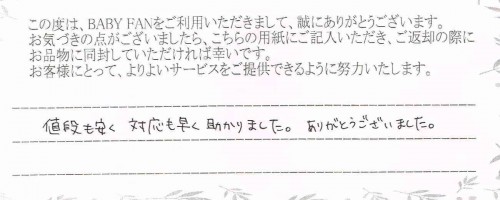 この度は、BABY FANをご利用いただきまして、誠にありがとうございます。
お気づきの点がございましたら、こちらの用紙にご記入いただき、ご返却の際に
お品物に同封していただければ幸いです。
お客様にとって、よりよいサービスをご提供できるように努力いたします。
値段も安く 対応も早く助かりました。ありがとうございました。